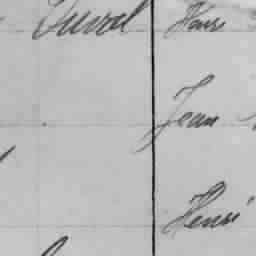 Duval Henri
Jean
Henri